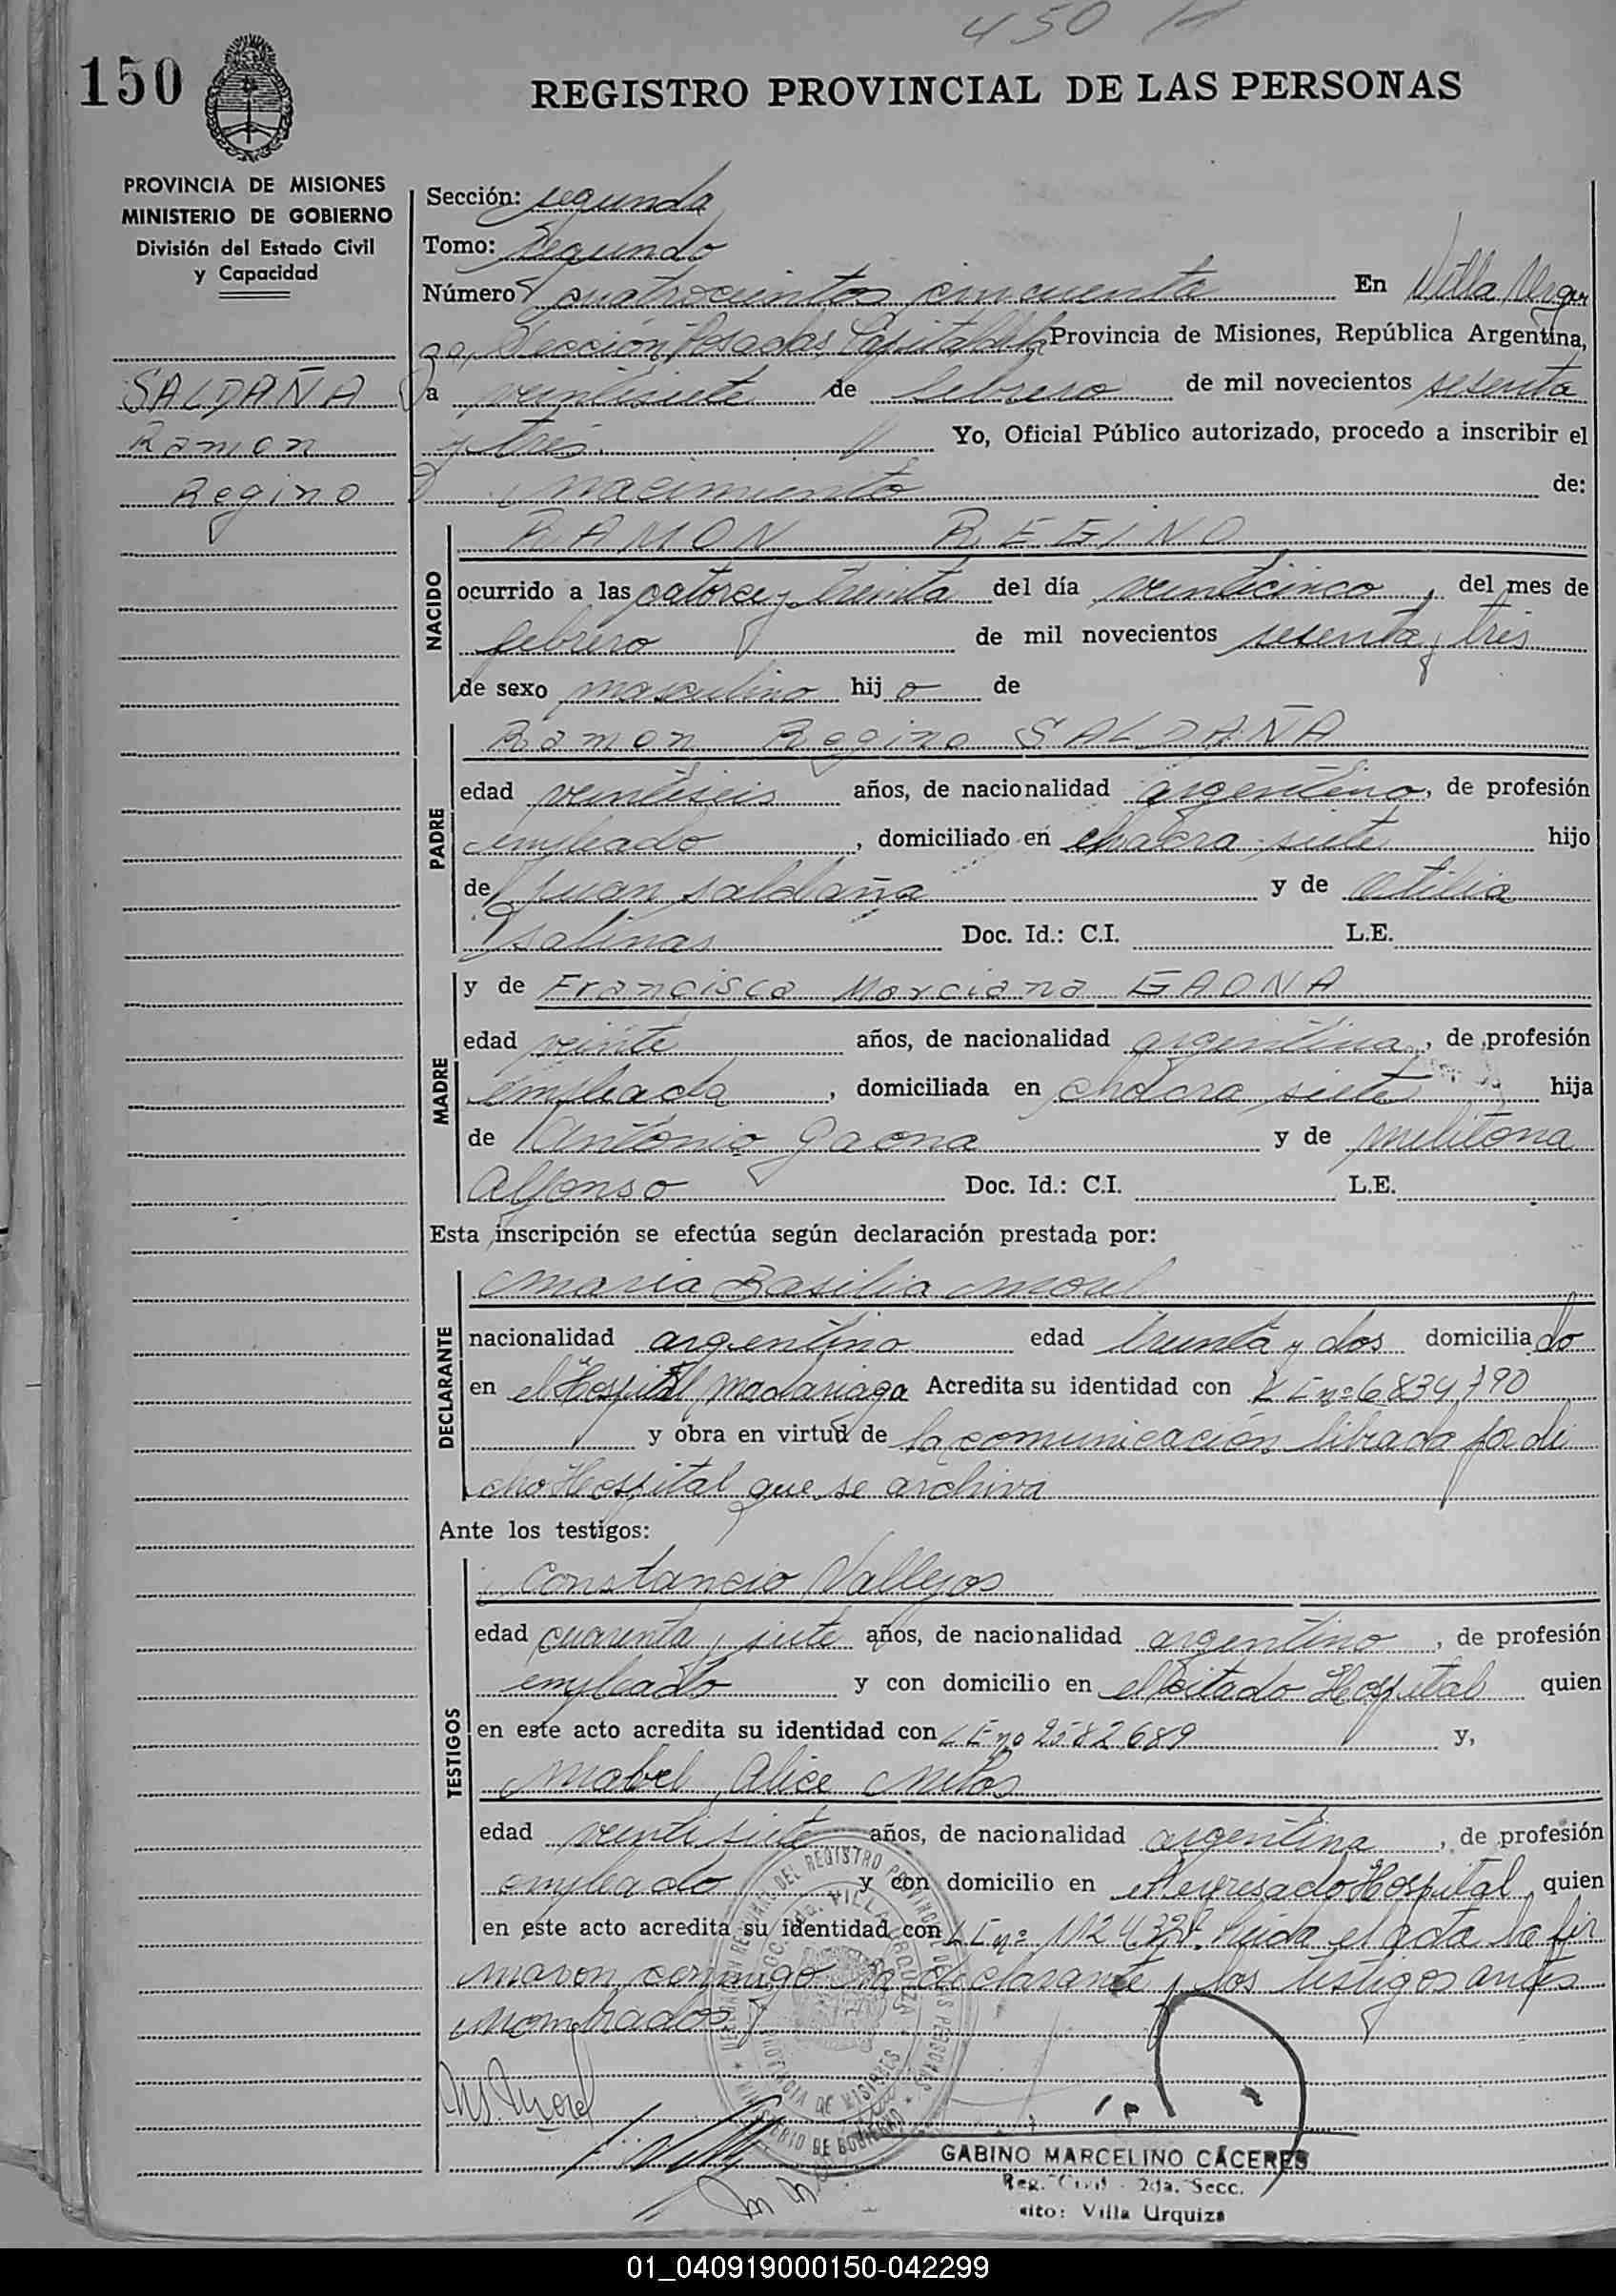 450
150
REGISTRO PROVINCIAL DE LAS PERSONAS
PROVINCIA DE MISIONES
MINISTERIO DE GOBIERNO
División del Estado Civil
y Capacidad
SALDAÑA
Ramon
Regino
Sección: segunda
Tomo: Segundo
Número cuatrocientos cincuenta En Villa Urqui
za, Sección Posadas, Capital de la Provincia de Misiones, República Argentina,
a veintisiete de febrero de mil novecientos sesenta
y tres Yo, Oficial Público autorizado, procedo a inscribir el
nacimiento de:
NACIDO
RAMON REGINO
ocurrido a las catorce y treinta del día veinticinco, del mes de
febrero de mil novecientos sesenta y tres
de sexo masculino hij o de
PADRE
Ramon Regino SALDAÑA
edad veintiseis años, de nacionalidad argentino, de profesión
empleado, domiciliado en chacra siete hijo
de Juan Saldaña y de Otilia
Salinas Doc. Id.: C.I. L.E.
MADRE
y de Francisca Marciana GAONA
edad veinte años, de nacionalidad argentina, de profesión
empleada, domiciliada en chacra siete hija
de Antonio Gaona y de Melitona
Alfonso Doc. Id.: C.I. L.E.
Esta inscripción se efectúa según declaración prestada por:
DECLARANTE
Maria Basilia Morel
nacionalidad argentina edad treinta y dos domicilia do
en el Hospital Madariaga Acredita su identidad con L E nº 6.834.790
y obra en virtud de la comunicación librada por di
cho Hospital que se archiva
Ante los testigos:
TESTIGOS
Constancio Vallejos
edad cuarenta y siete años, de nacionalidad argentino, de profesión
empleado y con domicilio en el citado Hospital quien
en este acto acredita su identidad con L E nº 2582689 y,
Mabel Alice
edad veintisiete años, de nacionalidad argentina, de profesión
empleado y con domicilio en el expresado Hospital quien
en este acto acredita su identidad con L E nº Leida el acta la fir
maron conmigo la declarante y los testigos antes
nombrados
REGISTRO PROVINCIAL DE LAS PERSONAS
VILLA URQUIZA
PROVINCIA DE MISIONES
MINISTERIO DE GOBIERNO
M.B. Morel
GABINO MARCELINO CÁCERES
Reg. Civil - 2da. Secc.
Villa Urquiza
01_040919000150-042299